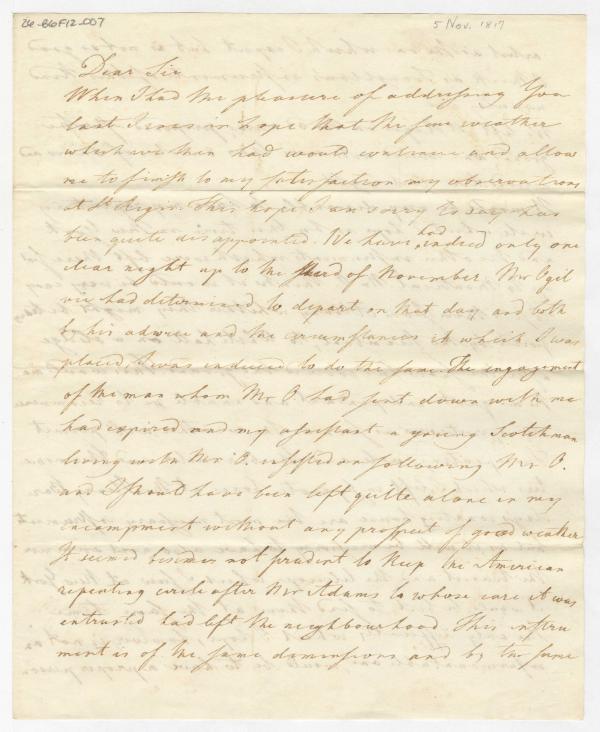 24-B6F12-007
5 Nov. 1817
Dear Sir
When I had the pleasure of addressing You
last I was in hope that the fine weather
which we then had would continue and allow
me to finish to my satisfaction my observations
at St Regis. This hope I am sorry to say has
been quite disappointed. We have had indeed only one
clear night up to the third of November. Mr Ogil
vie had determined to depart on that day, and both
by his advice and the circumstances in which I was
placed I was induced to do the same. The engagement
of the man whom Mr O. had sent down with me
had expired and my assistant a young Scotchman
living with Mr O. insisted on following Mr O.
and I should have been left quite alone in my
incampment without any prospect of good weather
It seemed besides not prudent to keep the American
repeating circle after Mr Adams to whose care it was
entrusted had left the neighbourhood This instru
ment is of the same dimensions and by the same